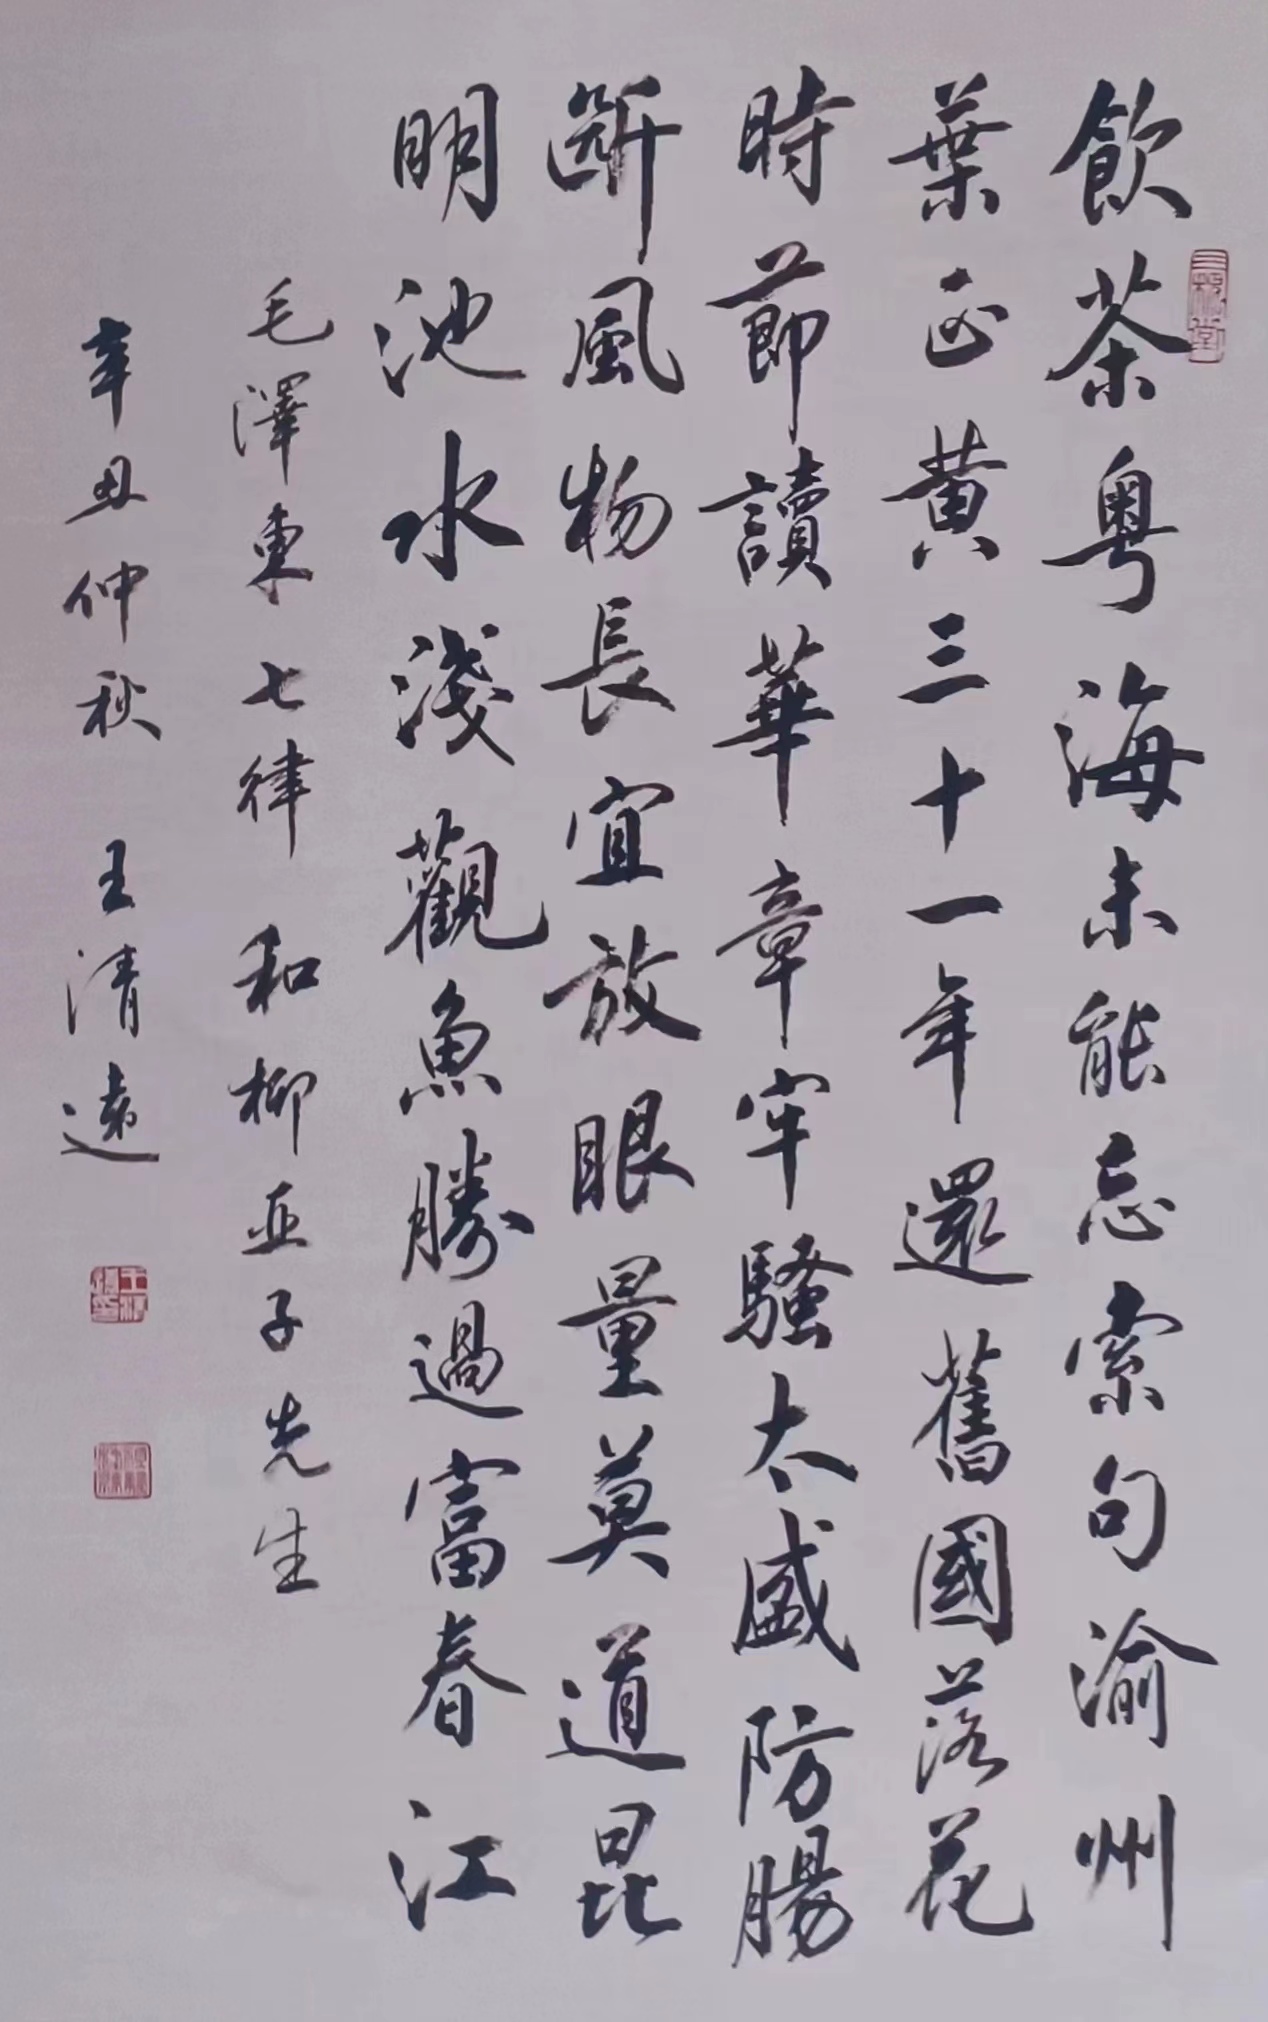 飲茶粵海未能忘索句渝州
葉正黃三十一年還舊國落花
時節讀華章牢騷太盛防腸
斷風物長宜放眼量莫道昆
明池水淺觀魚勝過富春江
毛澤東七律和柳亞子先生
辛丑仲秋王清遠